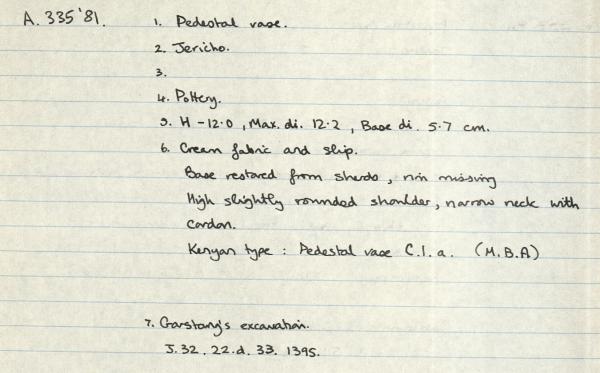 A. 335 '81.
1. Pedestal vase.
2. Jericho.
3.
4. Pottery.
5. H - 12.0, Max. di. 12.2, Base di. 5.7 cm.
6. Cream fabric and slip.
Base restored from sherds, rim missing
High slightly rounded shoulder, narrow neck with
cordon.
Kenyan type : Pedestal vase C.1.a. (M.B.A)
7. Garstang's excavation.
J.32.22.d.33.1395.